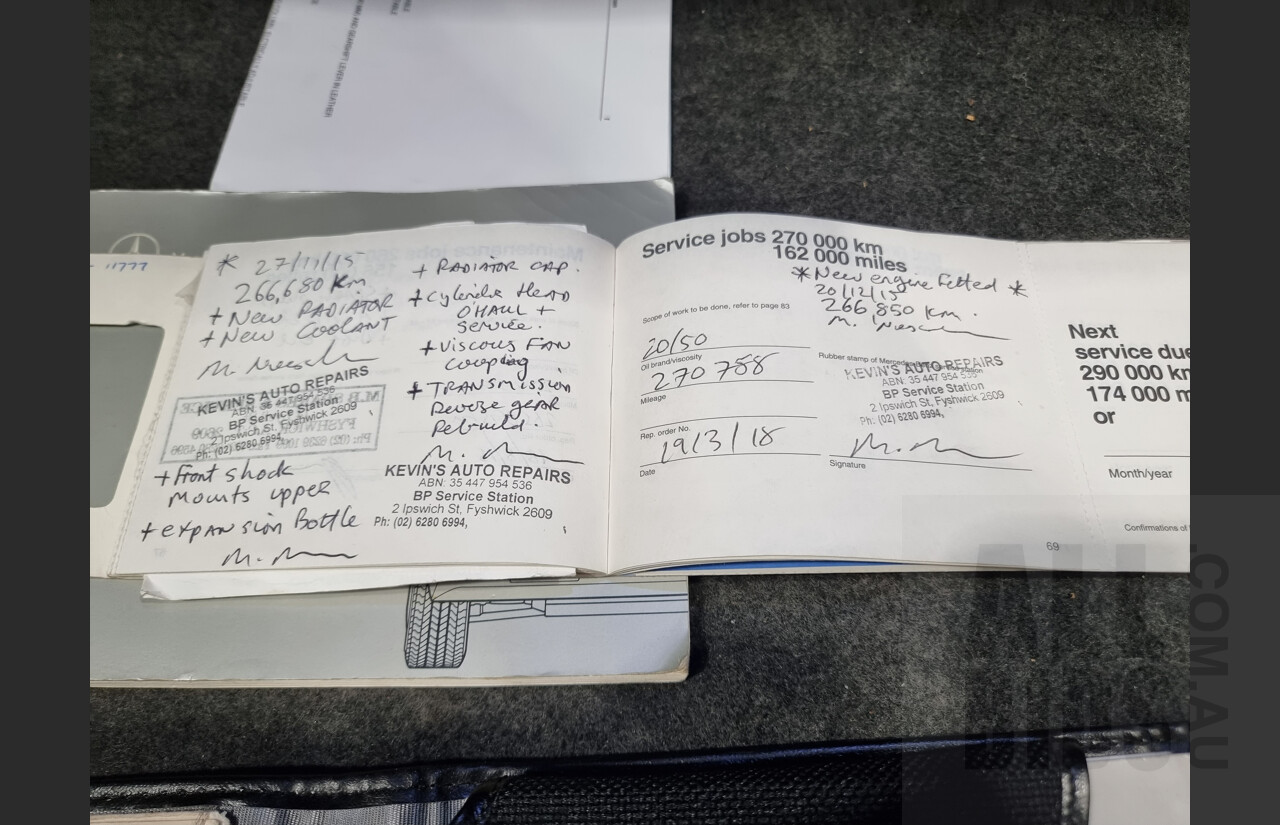 * 27/11/15
266,680 Km
+ New RADIATOR
+ New COOLANT
KEVIN'S AUTO REPAIRS
ABN: 35 447 954 536
BP Service Station
2 Ipswich St, Fyshwick 2609
Ph: (02) 6280 6994,
+ Front shock
Mounts upper
+ expansion Bottle
+ RADIATOR CAP.
+ Cylinder HeAD
O'HAUL +
Service.
+ Viscous FAN
+ TRANSMISSION
Reverse gear
Rebuild.
KEVIN'S AUTO REPAIRS
ABN: 35 447 954 536
BP Service Station
2 Ipswich St, Fyshwick 2609
Ph: (02) 6280 6994,
Service jobs 270 000 km
162 000 miles
* New engine Fitted *
20/12/15
266 850 Km.
Scope of work to be done, refer to page 83
20/50
Oil brand/viscosity
270 788
Mileage
Rep. order No.
19/3/18
Date
Rubber stamp of
KEVIN'S AUTO REPAIRS
ABN: 35 447 954 536
BP Service Station
2 Ipswich St, Fyshwick 2609
Ph: (02) 6280 6994,
Signature
69
Next
service due
290 000 km
174 000 m
or
Month/year
Confirmations of
.COM.AU